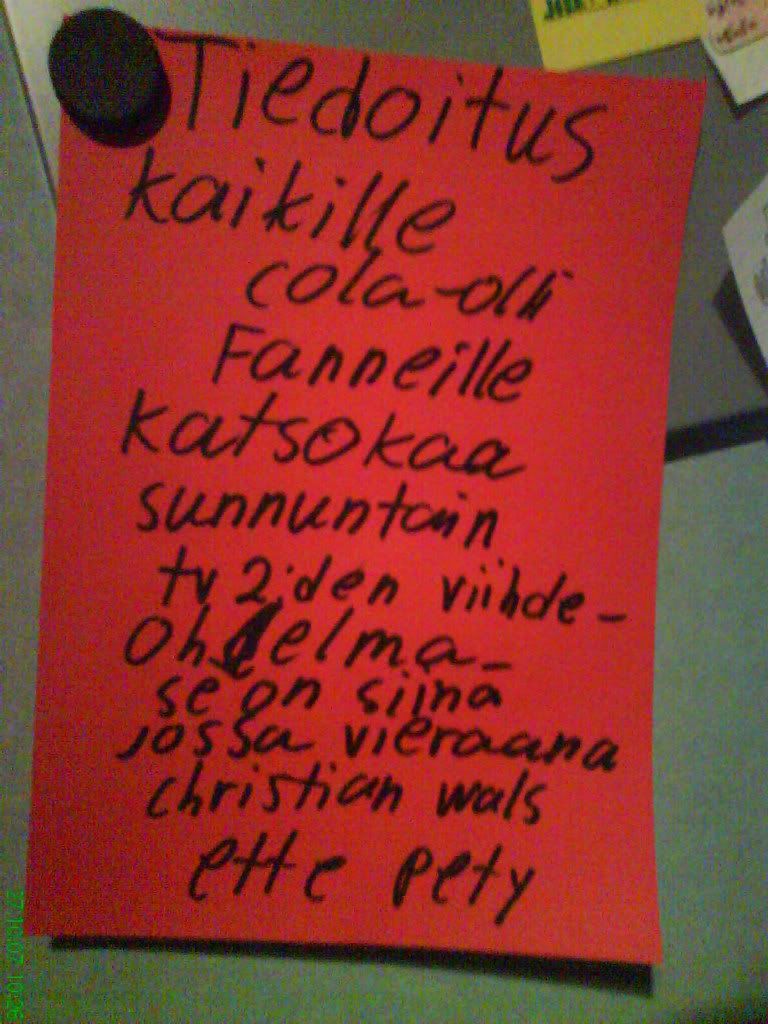 Tiedoitus
kaikille
cola-olli
Fanneille
katsokaa
sunnuntain
tv 2:den viihde-
ohjelma-
se on siinä
jossa vieraana
christian wals
ette pety